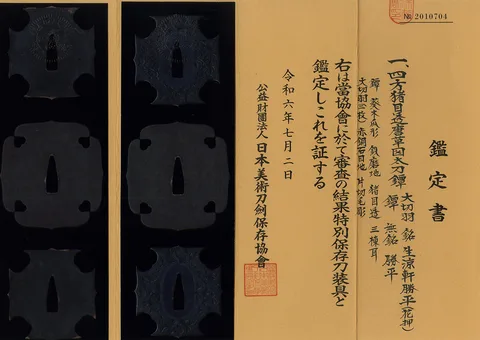 № 2010704
鑑定書
一、四方猪目透唐草図太刀鐔
大切羽 銘 生涼軒勝平(花押)
鐔 無銘 勝平
鐔 葵木瓜形 鉄磨地 猪目透 三棟耳
大切羽(二枚) 赤銅石目地 片切毛彫
右は當協會に於て審査の結果特別保存刀装具と
鑑定しこれを証する
令和六年七月二日
公益財團法人 日本美術刀劍保存協會